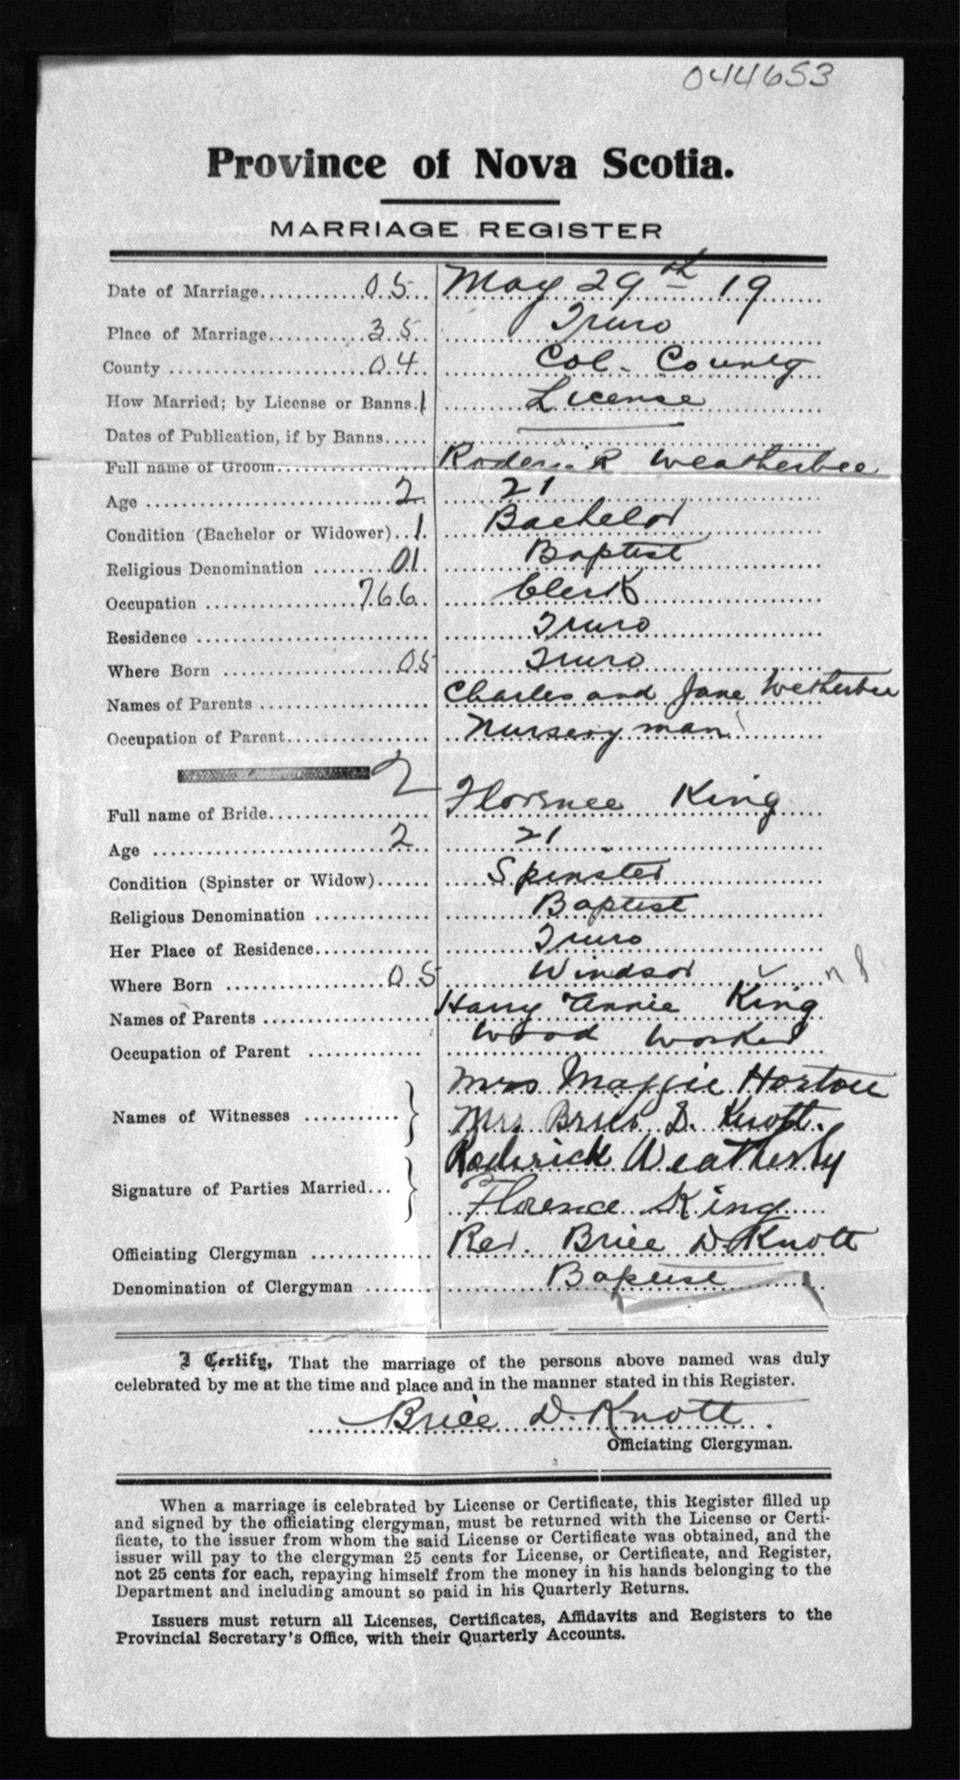 044653
Province of Nova Scotia.
MARRIAGE REGISTER
Date of Marriage............05.. May 29th 19
Place of Marriage............35.. Truro
County ....................04.. Col. County
How Married; by License or Banns.1 License
Dates of Publication, if by Banns..... ———
Full name of Groom................ Roderick Weatherbee
Age ........................2.. 21
Condition (Bachelor or Widower)..1. Bachelor
Religious Denomination ........01. Baptist
Occupation ................766.. Clerk
Residence ........................ Truro
Where Born ..................05 Truro
Names of Parents .................. Charles and Jane Wetherbee
Occupation of Parent................ Nursery man
2
Full name of Bride.................. Florence King
Age ........................2.. 21
Condition (Spinster or Widow)...... Spinster
Religious Denomination ............ Baptist
Her Place of Residence............. Truro
Where Born ................05 Windsor ✓ n S
Names of Parents .................. Harry Annie King
Occupation of Parent ............. Wood Worker
Names of Witnesses ........... } Mrs Maggie Horton
Mrs Brice D. Knott.
Signature of Parties Married... } Roderick Weatherby
Florence King
Officiating Clergyman ............. Rev. Brice D. Knott
Denomination of Clergyman ........ Baptist
I Certify, That the marriage of the persons above named was duly
celebrated by me at the time and place and in the manner stated in this Register.
Brice D. Knott.
Officiating Clergyman.
When a marriage is celebrated by License or Certificate, this Register filled up
and signed by the officiating clergyman, must be returned with the License or Certi-
ficate, to the issuer from whom the said License or Certificate was obtained, and the
issuer will pay to the clergyman 25 cents for License, or Certificate, and Register,
not 25 cents for each, repaying himself from the money in his hands belonging to the
Department and including amount so paid in his Quarterly Returns.
Issuers must return all Licenses, Certificates, Affidavits and Registers to the
Provincial Secretary's Office, with their Quarterly Accounts.